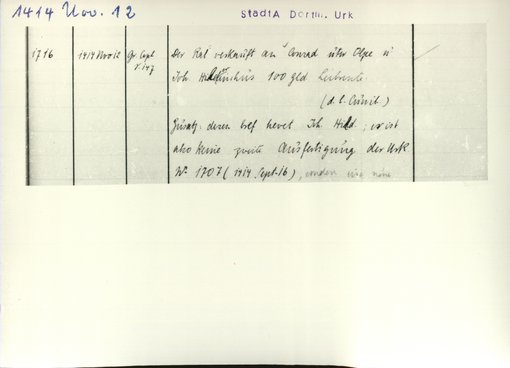 1414 Nov. 12
StadtA Dortm. Urk
1716
1414 Nov 12
Gr. Copb
Der Rat verkauft an Conrad Olpe u
Joh. 100 gld Leibrente.
(d. l. Cunib.)
Zusatz: deren helf hevet Joh. Hild.; er ist
also keine zweite Ausfertigung der Urk
Nr 1707 (1414 Sept. 16), sondern eine neue